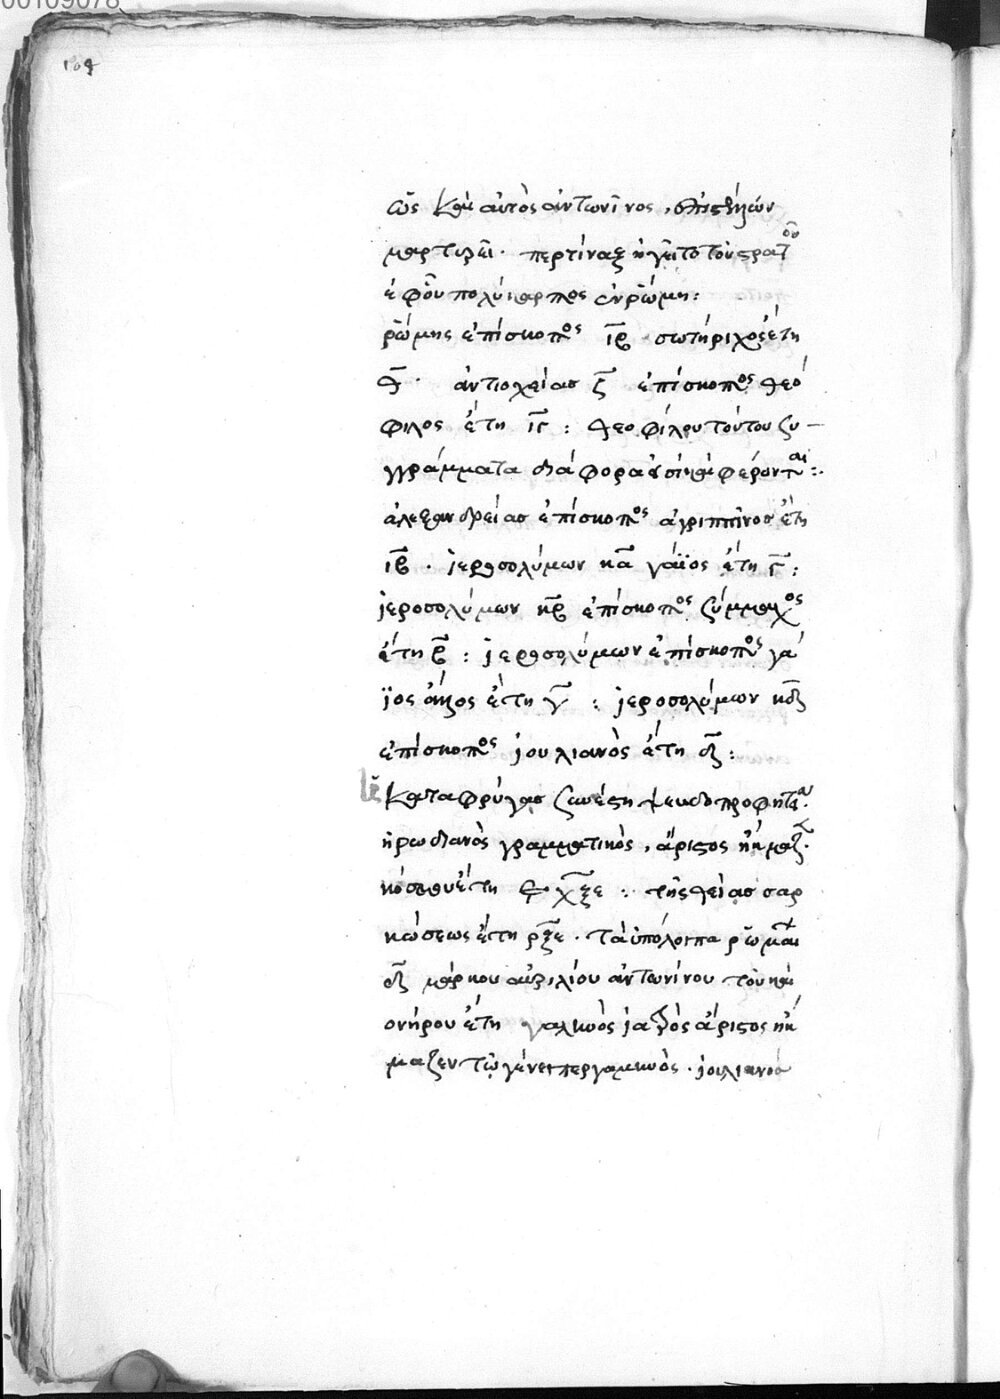 00109078
ὡς καὶ αὐτὸς ἀντωνῖνος, ἐπιστέλλων
μαρτυρεῖ · περτίναξ ἡγεῖτο τοῦ στρατοῦ
ἐφ' οὗ πολύκαρπος ἐν ῥώμη :
ῥώμης ἐπίσκοπος ιβ σωτήριχος ἔτη
θ · ἀντιοχείας ϛ ἐπίσκοπος θεό
φιλος ἔτη ιγ : θεοφίλου τούτου συ
γγράμματα διάφορα εἰσὶ καὶ φέρονται :
ἀλεξανδρείας ἐπίσκοπος ἀγριππῖνος ἔτη
ιβ · ἱεροσολύμων κα γάϊος ἔτη γ :
ἱεροσολύμων κβ ἐπίσκοπος σύμμαχος
ἔτη β : ἱεροσολύμων ἐπίσκοπος γά
ϊος ἄλλος ἔτη γ : ἱεροσολύμων κδ
ἐπίσκοπος ἰουλιανὸς ἔτη δ :
κατὰ φρύγας συνέστη ψευδοπροφητεία ·
ἡρωδιανὸς γραμματικὸς, ἄριστος ἤκμαζ ·
κόσμου ἔτη ͵εχξε : τῆς θείας σαρ
κώσεως ἔτη ρξε · τὰ ὑπόλοιπα ῥωμαι
δ μάρκου αὐριλίου ἀντωνίνου τοῦ καὶ
ουήρου ἔτη γαληνὸς ἰατρὸς ἄριστος ἤκ
μαζεν τῶ γένει περγαμινὸς · ἰουλιανὸς